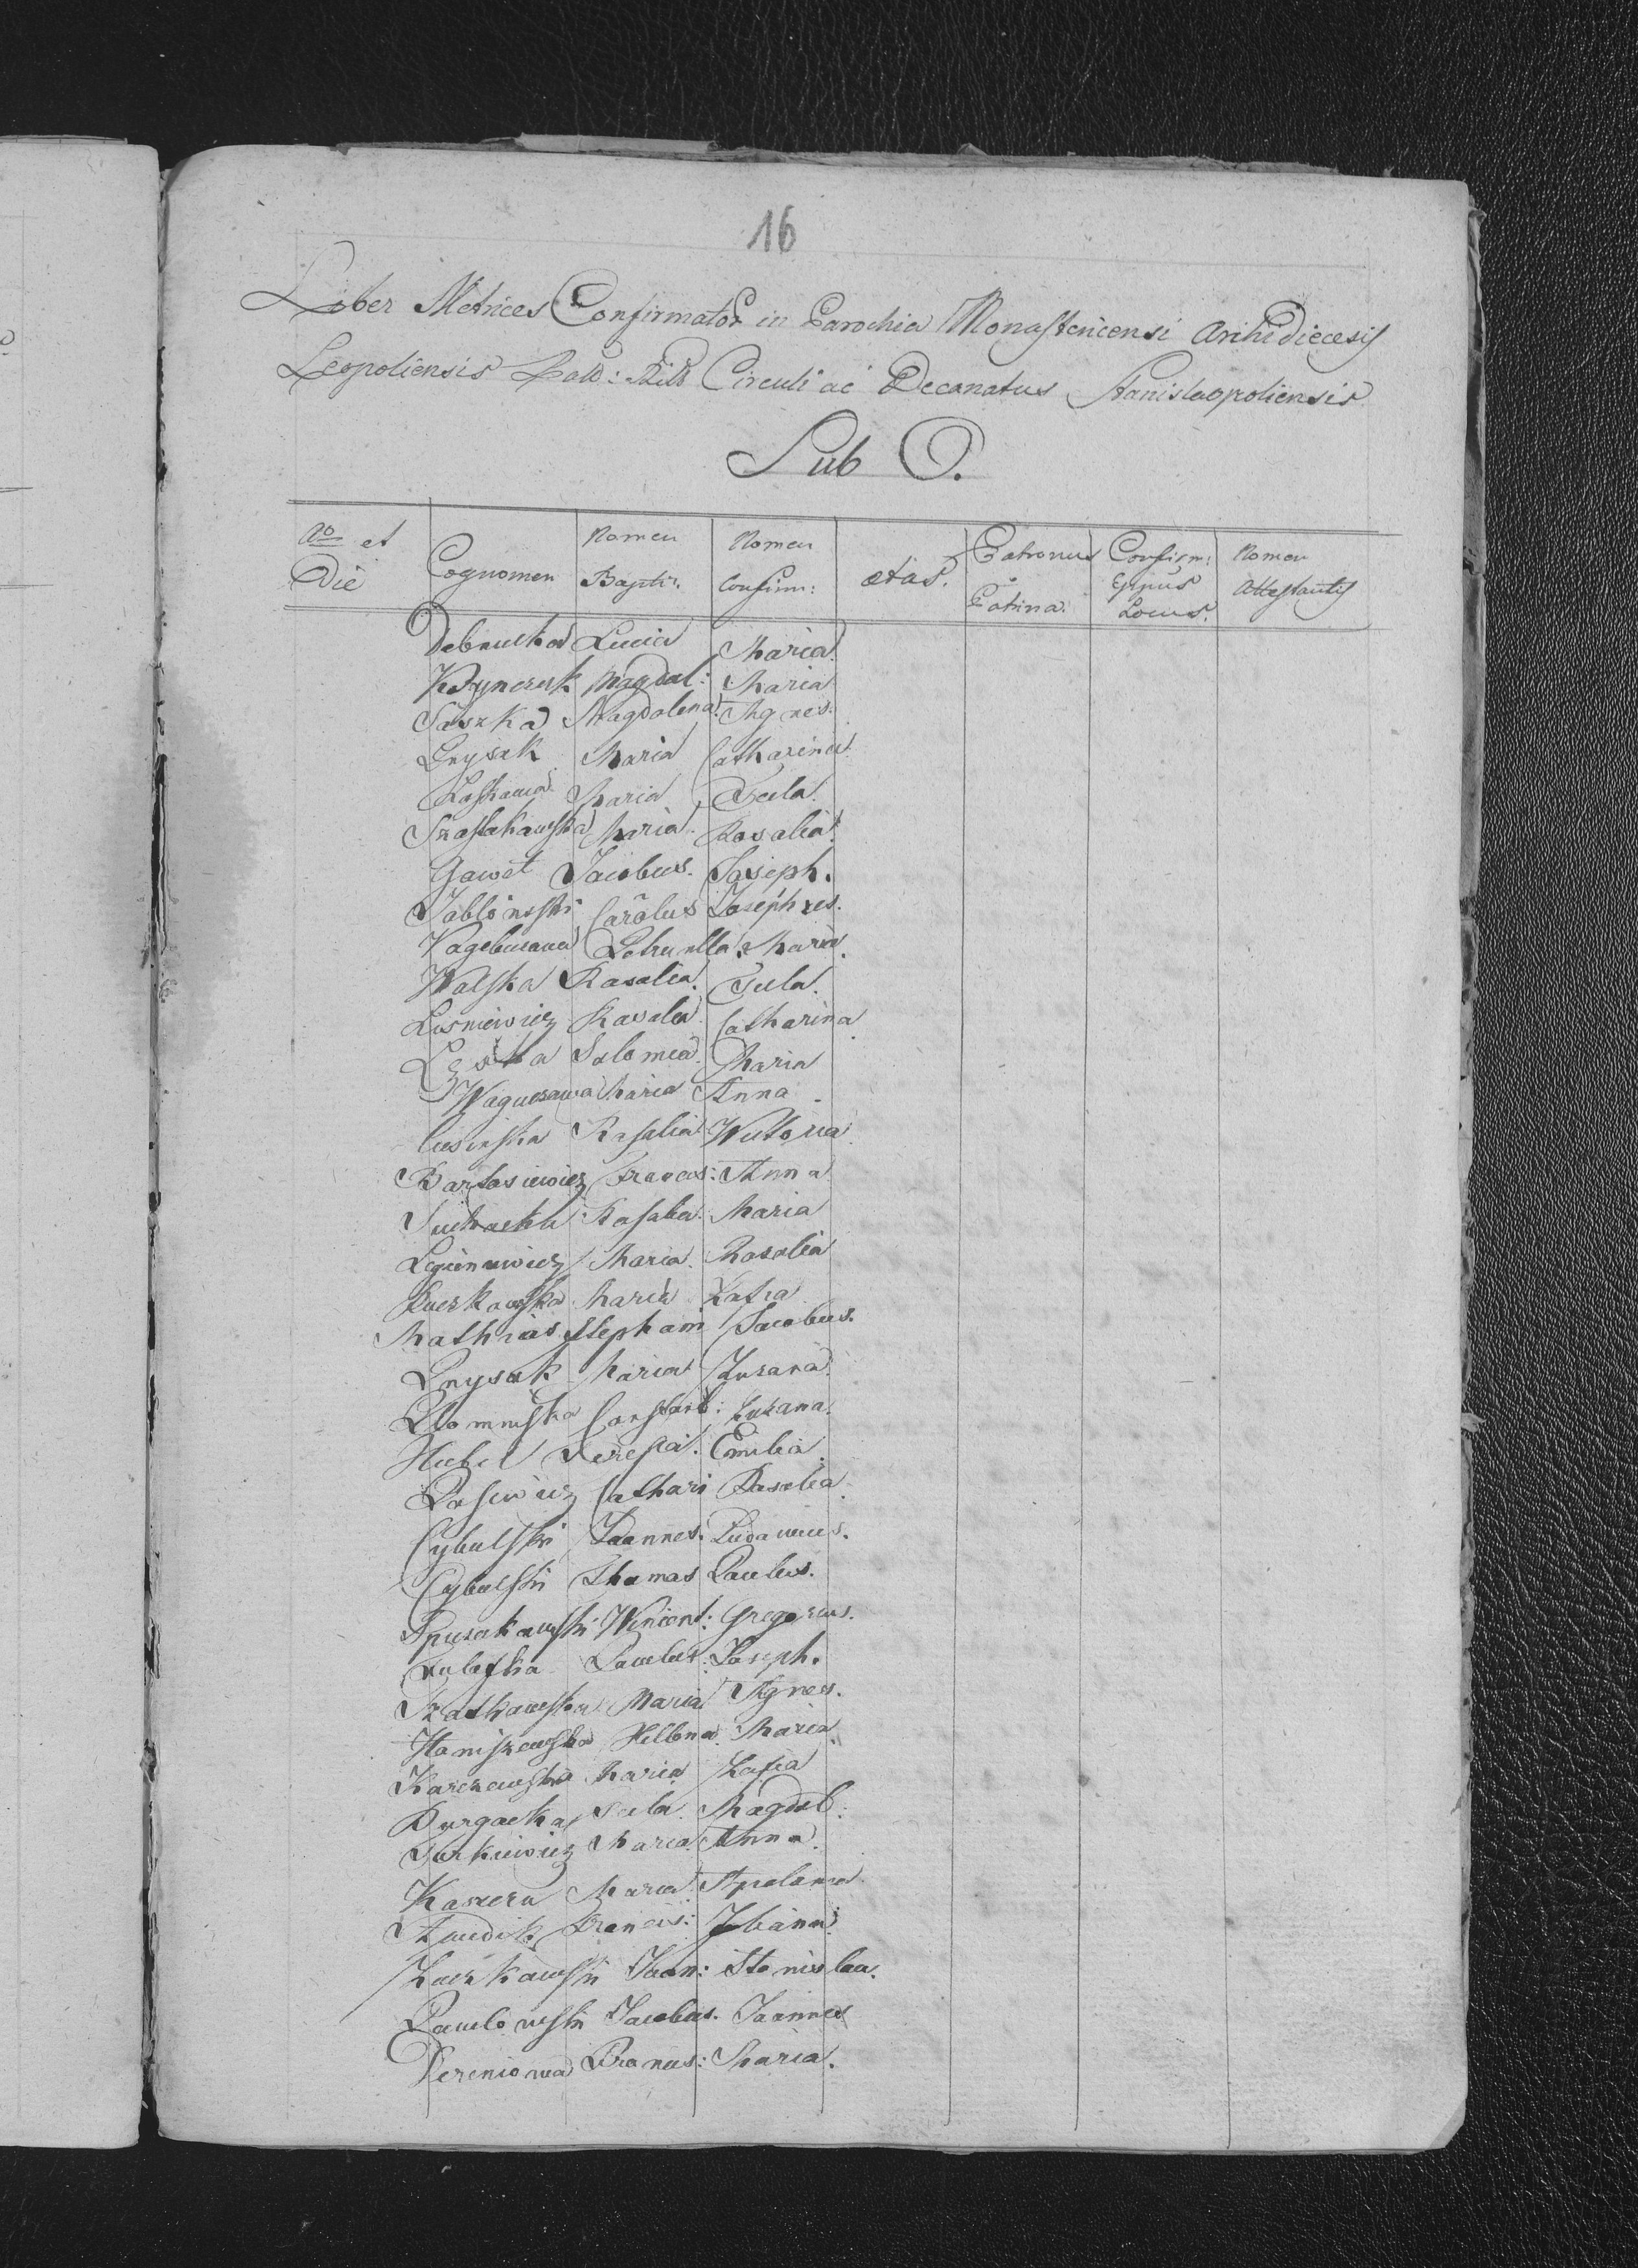 16
Liber Metrices Confirmator in Parochia Monastericensi Archidiecesis
Leopoliensis Circuli ac Decanatus Stanislaopoliensis
Sub O.
No et Die Cognomen Nomen Bapti: Nomen Confirm: ætas. Patronus Patrina. Confirm: Eppus Locus. Nomen Attestantis
Debnucka Lucia Maria.
Krynczuk Magdal: Maria
Saszka Magdalena Agnes.
Gnysak Maria Catharina
Laskawa Maria Tecla.
Maria Rosalia.
Gaweł Jacobus. Joseph.
Jabloński Carolus Josephus.
Petrunella Maria.
Walska Rosalia. Tecla.
Losniewicz Rosalia Catharina
Salomea. Maria
Maria Anna
Rosalia Wiktoria
Bartosiewicz Francis: Anna
Suchacka Rosalia. Maria
Maria. Rosalia
Maria Zofia
Mathias Stephani Jacobus.
Gnysak Maria Zuzana.
Constant: Zuzana.
Hubel Teresia. Emilia.
Cathari Rosalia.
Cybulski Joannes. Ludovicus.
Cybulski Thomas Paulus.
Wincent: Gregorius.
Paulus. Joseph.
Szatkowska Maria Agnes.
Haniszewska Hellena. Maria.
Karczewska Maria Zofia
Durgacka Tecla. Magdal:
Turkiewicz Maria. Anna.
Kaszera Maria. Apolonia
Francis: Joanni
Zurkowski Joan: Stanislau.
Pawlowski Jacobus. Joannes
Dereniowa Francis: Maria.